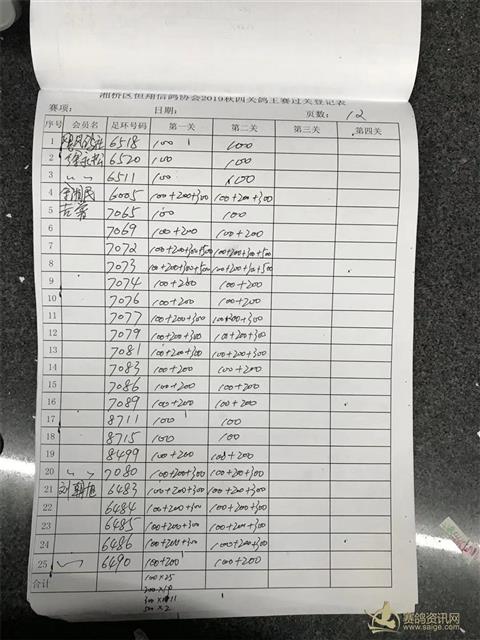 湘桥区恒翔信鸽协会2019秋四关鸽王赛过关登记表
赛项: 日期: 页数: 12
序号 会员名 足环号码 第一关 第二关 第三关 第四关
1 6518 100 100
2 徐永松 6520 100 100
3 〃 〃 6511 100 100
4 6005 100+200+300 100+200+300
5 7065 100 100
6 7069 100+200 100+200
7 7072 100+200+300+500 100+200+300+500
8 7073 100+200+300+500 100+200+300+500
9 7074 100+200 100+200
10 7076 100+200 100+200
11 7077 100+200+300 100+200+300
12 7079 100+200+300 100+200+300
13 7081 100+200+300 100+200+300
14 7083 100+200 100+200
15 7086 100+200 100+200
16 7089 100+200 100+200
17 8711 100 100
18 8715 100 100
19 8499 100+200 100+200
20 〃 〃 7080 100+200+300 100+200+300
21 刘朝旭 6483 100+200+300 100+200+300
22 6484 100+200+300 100+200+300
23 6485 100+200+300 100+200+300
24 6486 100+200+300 100+200+300
25 6490 100+200 100+200
合计
100×25
300×11
500×2
赛鸽资讯网
www.saige.com